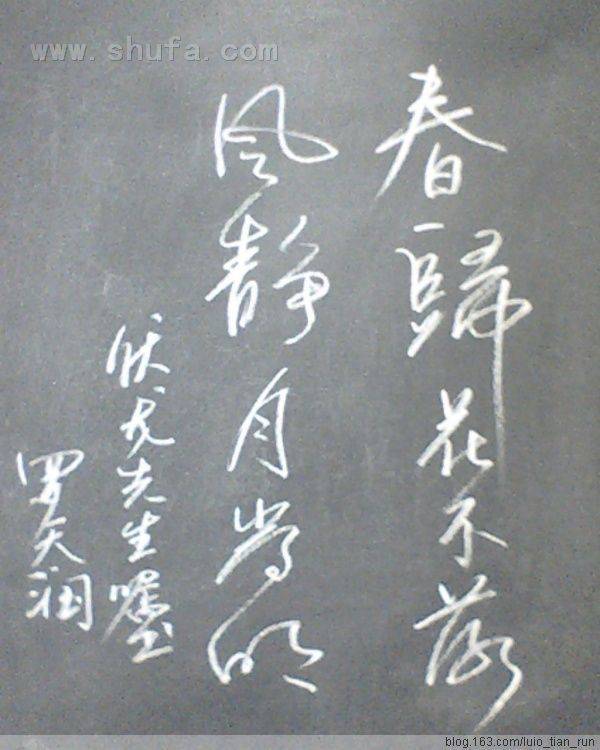 www.shufa.com
春歸花不落
風静月常明
伏龙先生嘱
罗天润
blog.163.com/luio_tian_run